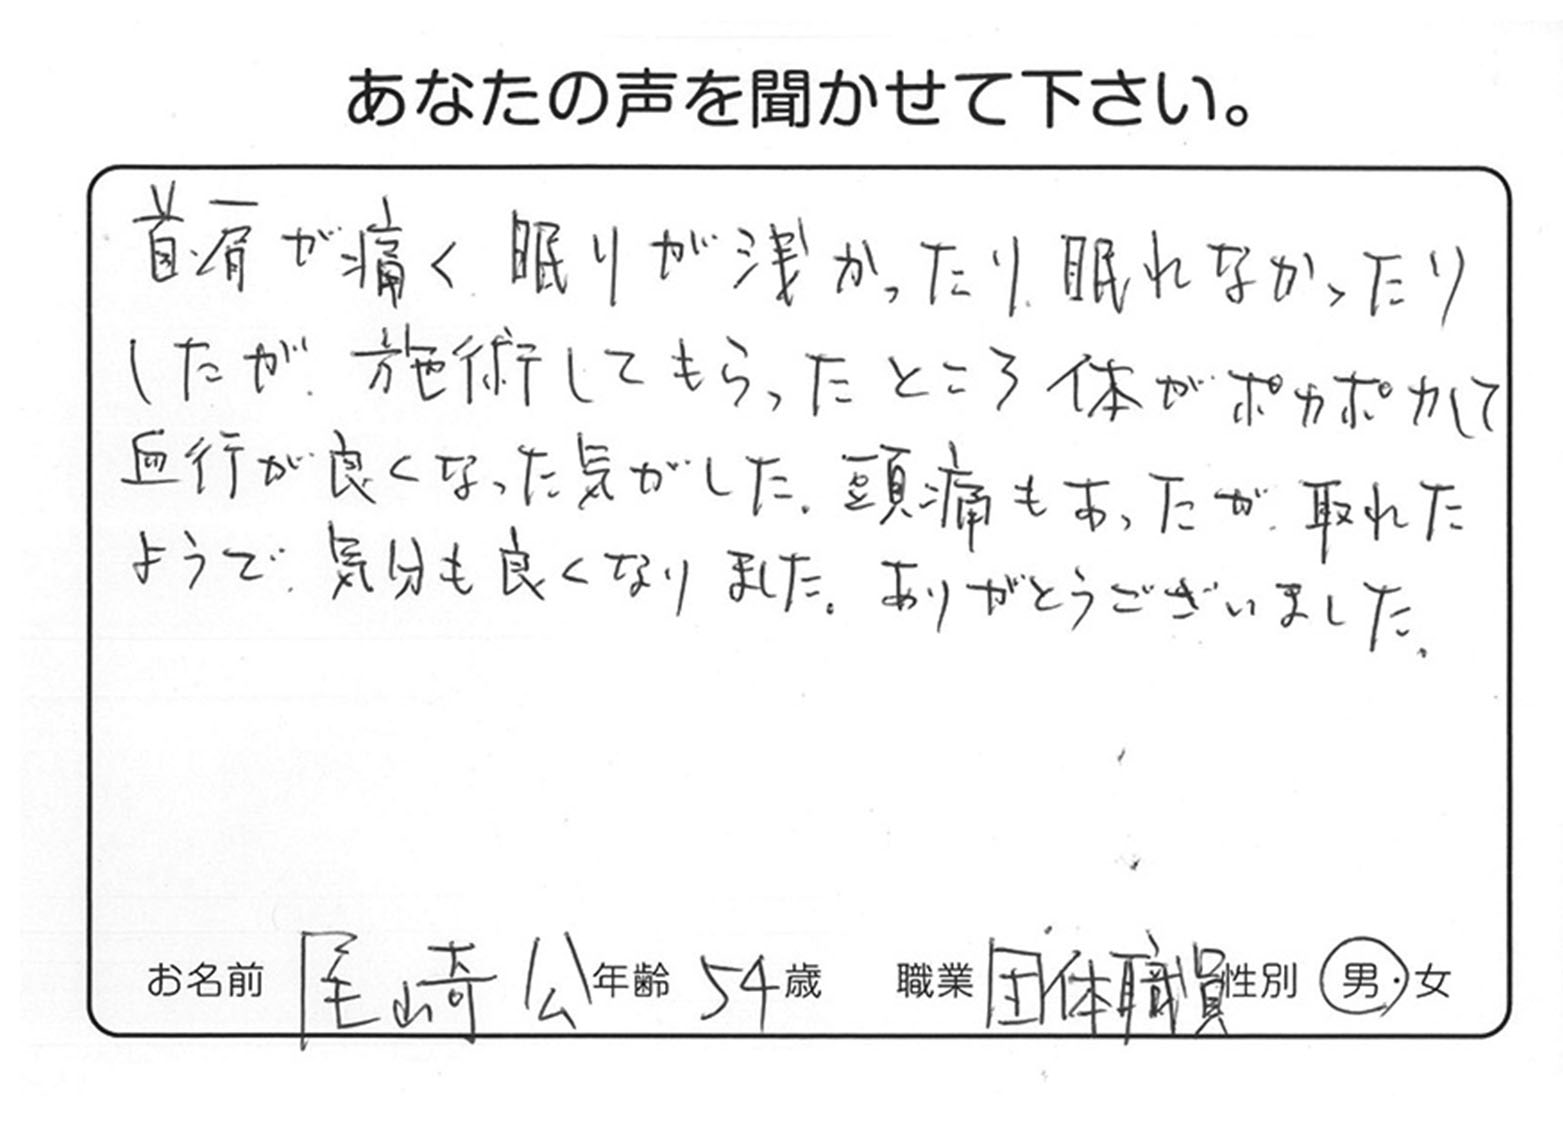 あなたの声を聞かせて下さい。
首肩が痛く、眠りが浅かったり、眠れなかったり
したが、施術してもらったところ体がポカポカして
血行が良くなった気がした。頭痛もあったが、取れた
ようで、気分も良くなりました。ありがとうございました。
お名前 尾崎 公 年齢 54 歳 職業 団体職員 性別 男・女